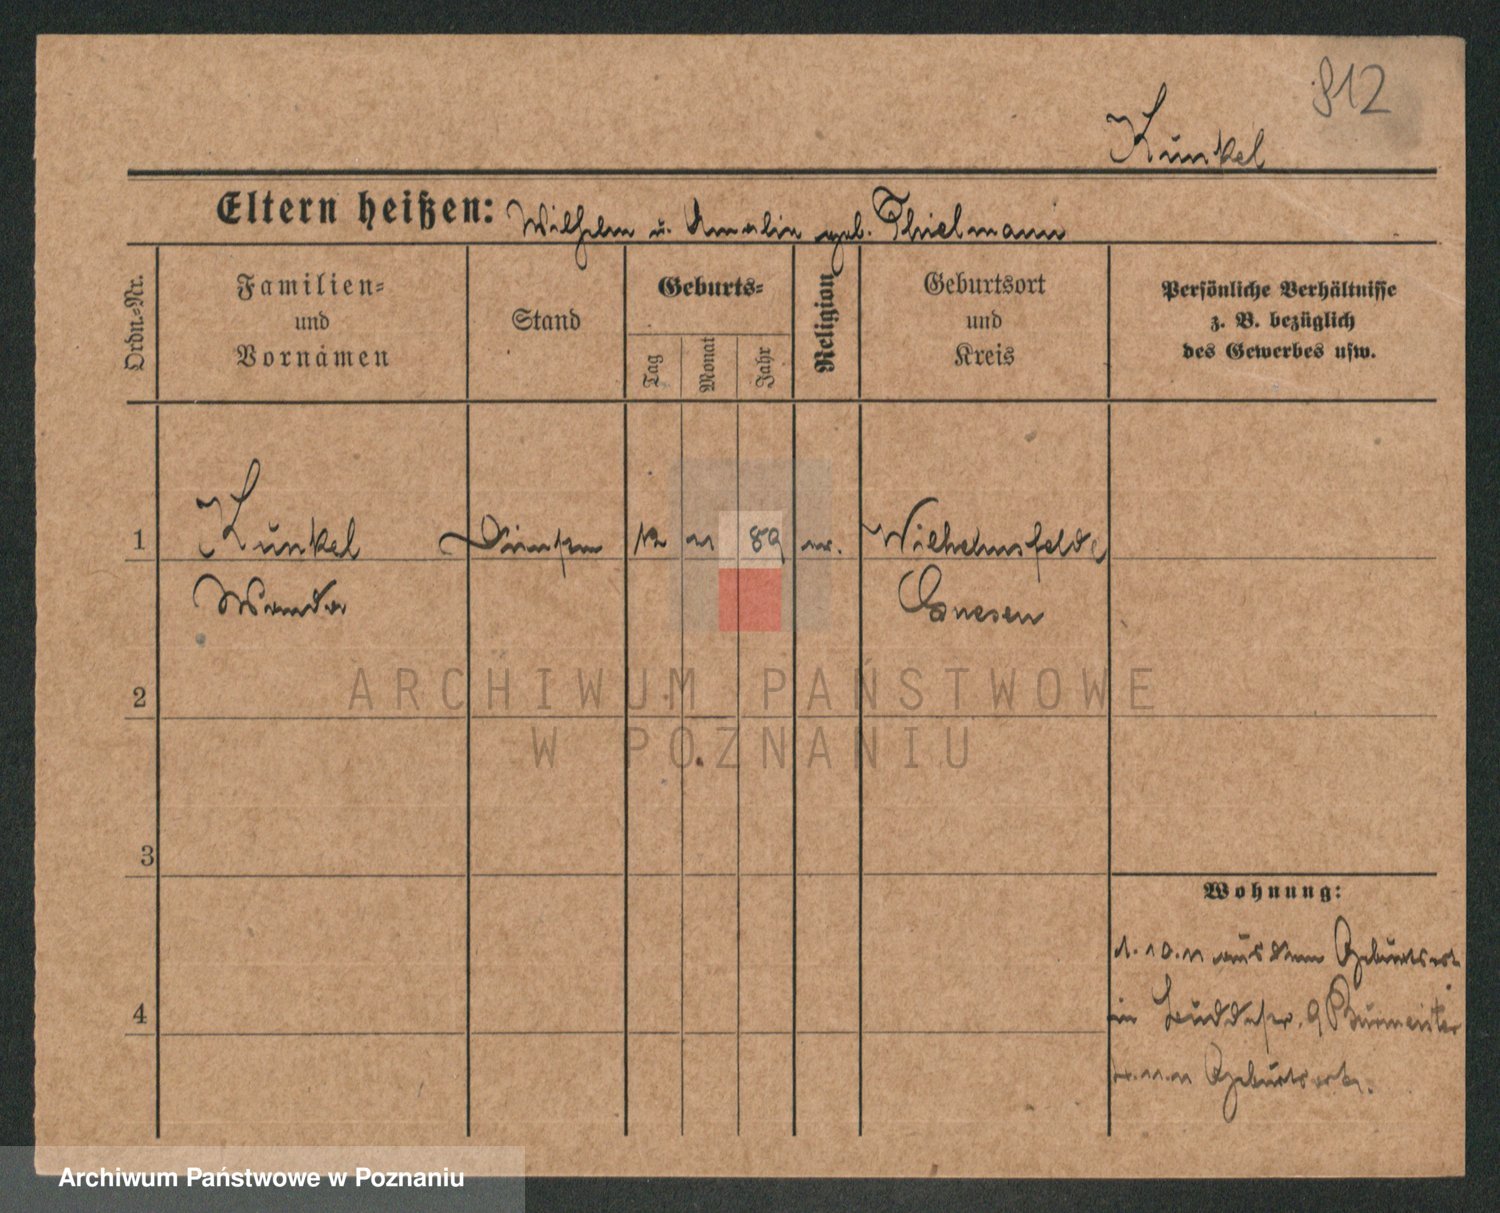 912
Kunkel
Eltern heißen: Wilhelm u. Amalie geb. Thielmann
Ordn.-Nr.
Familien-
und
Vornamen
Stand
Geburts-
Tag
Monat
Jahr
Religion
Geburtsort
und
Kreis
Persönliche Verhältnisse
z. B. bezüglich
des Gewerbes usw.
1 Kunkel 12 11 89 ev. Wilhelmsfelde
Wanda Gnesen
2
ARCHIWUM PAŃSTWOWE
W POZNANIU
3
Wohnung:
1.10.11 aus dem Geburtsort
in 9 Burmeister
4
Geburtsort.
Archiwum Państwowe w Poznaniu